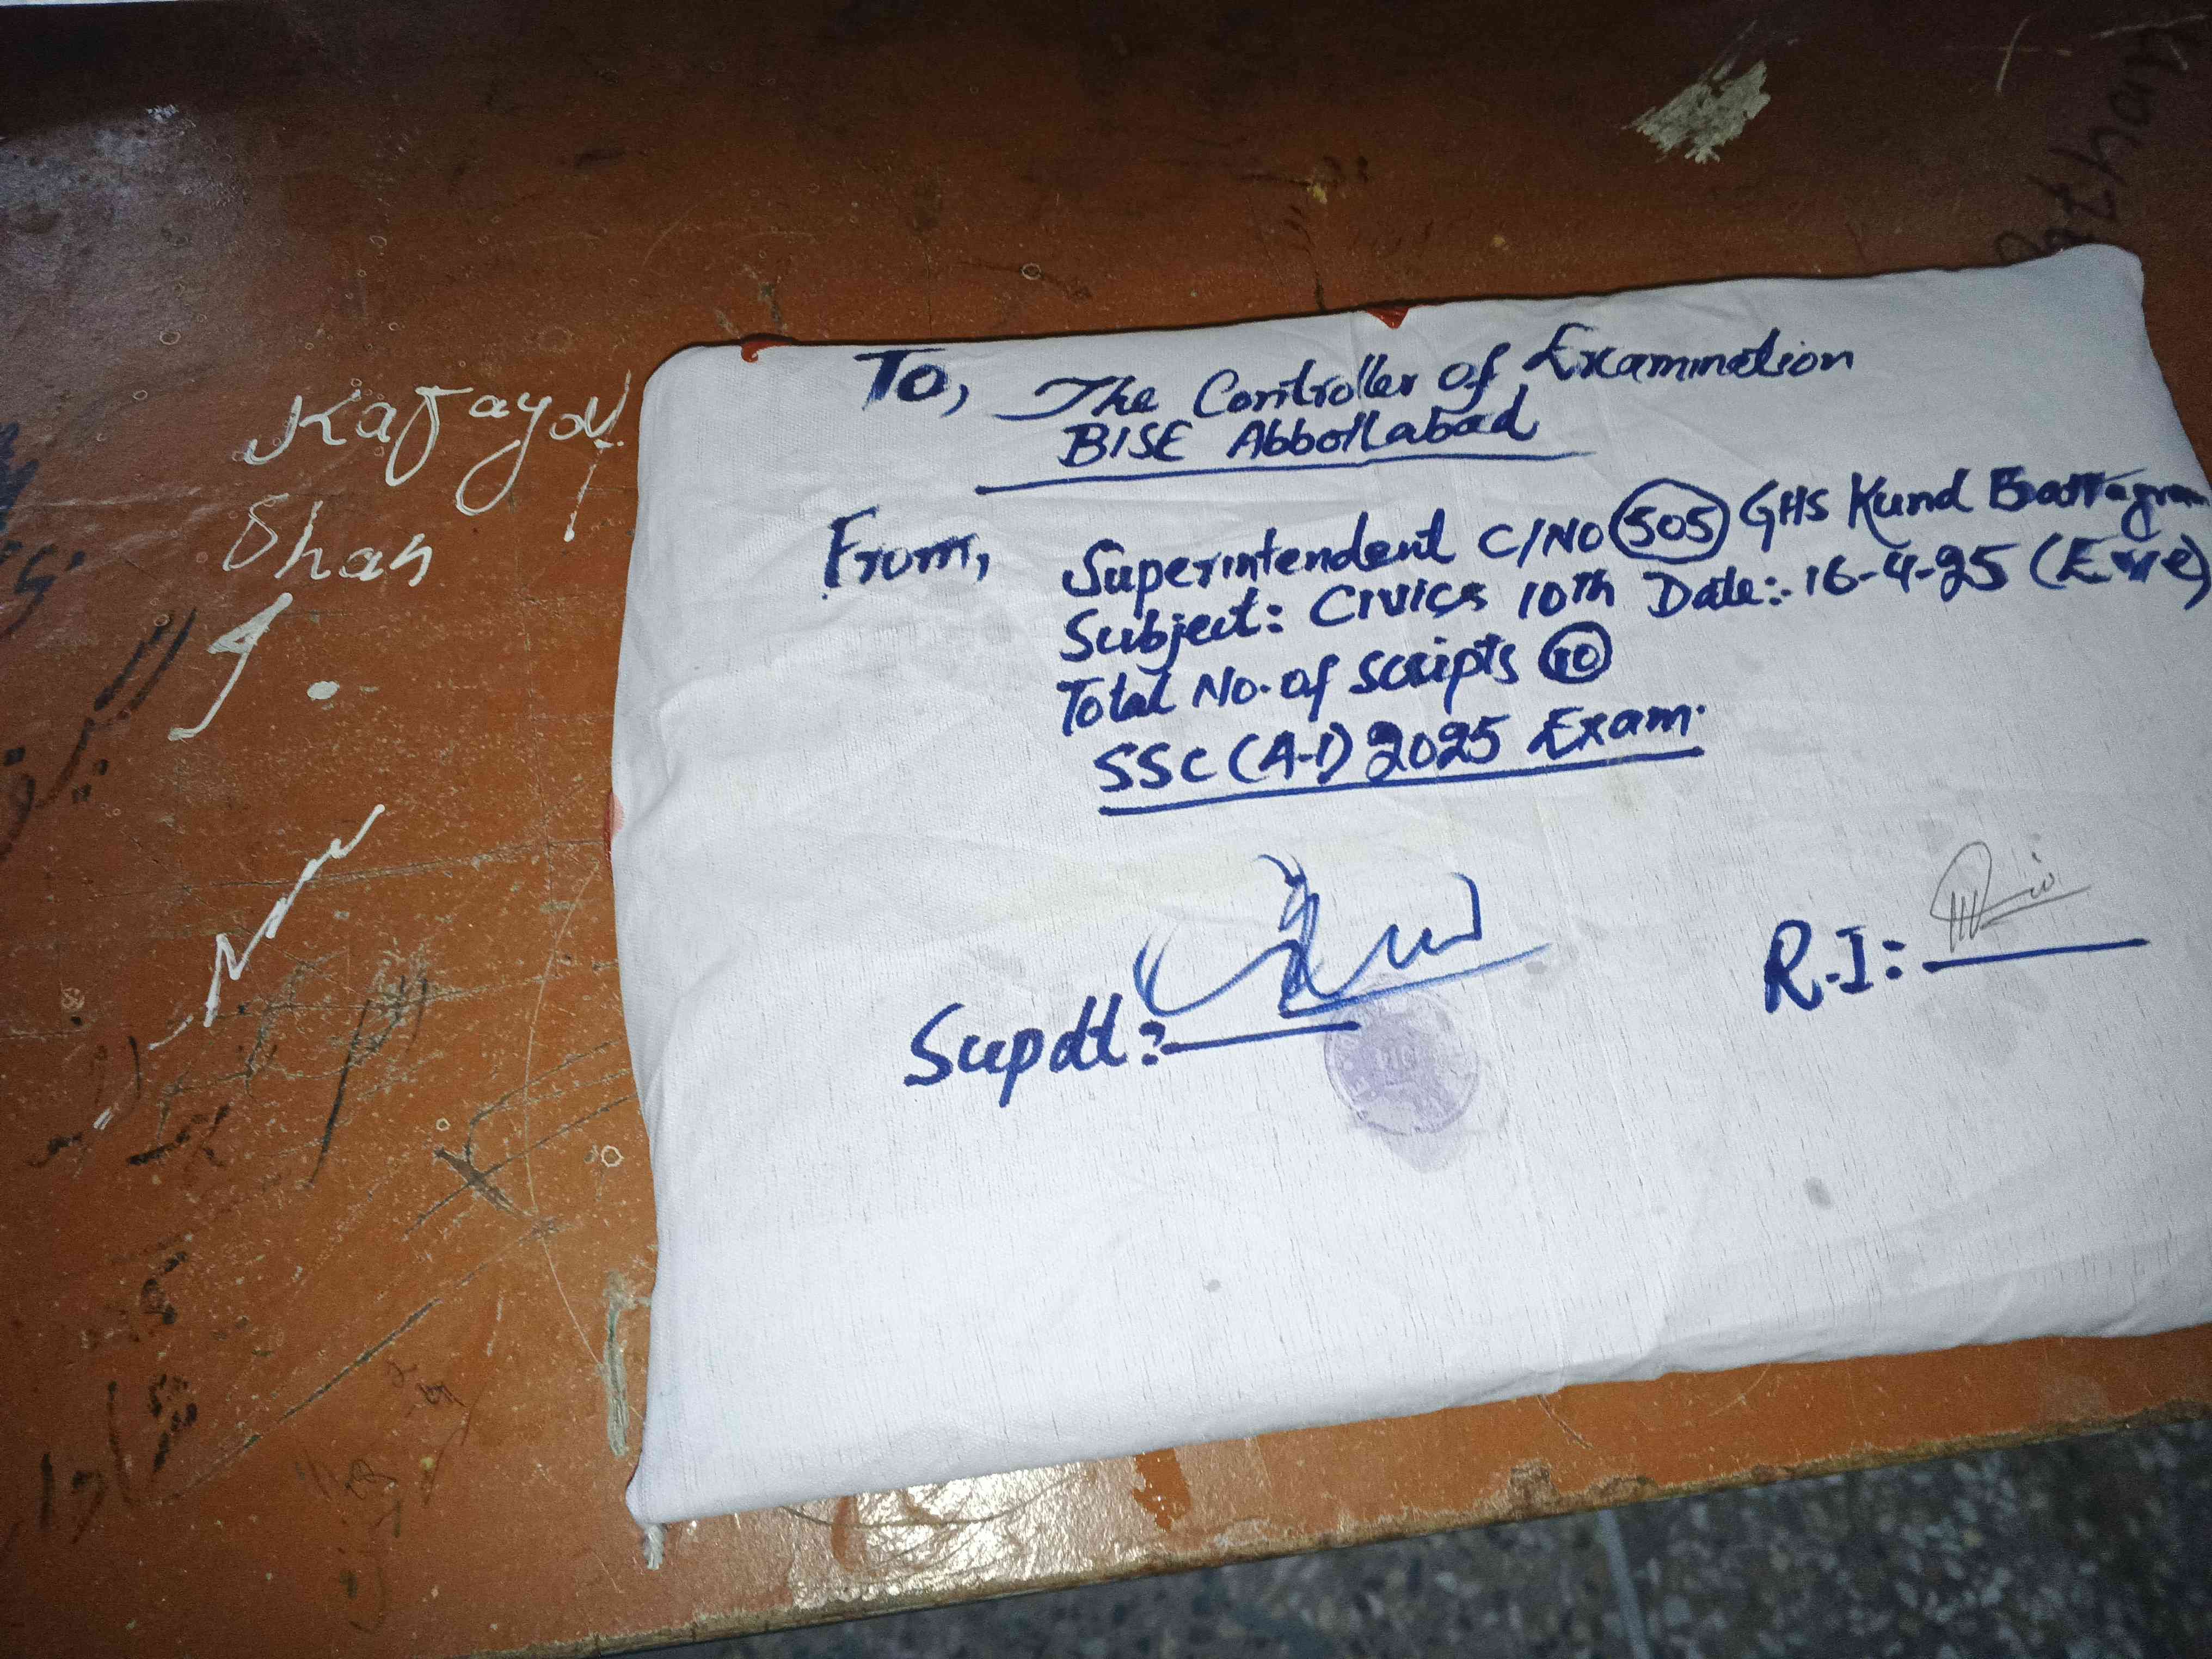 To,
The Controller of Examination
BISE Abbottabad
From,
Superintendent C/NO 505 GHS Kund Battagram
Subject: Civics 10th Date:- 16-4-25 (Eve)
Total No. of scripts 10
SSC (A-I) 2025 Exam.
Supdt:
R.I:
Kafayat
Shah
J.
N